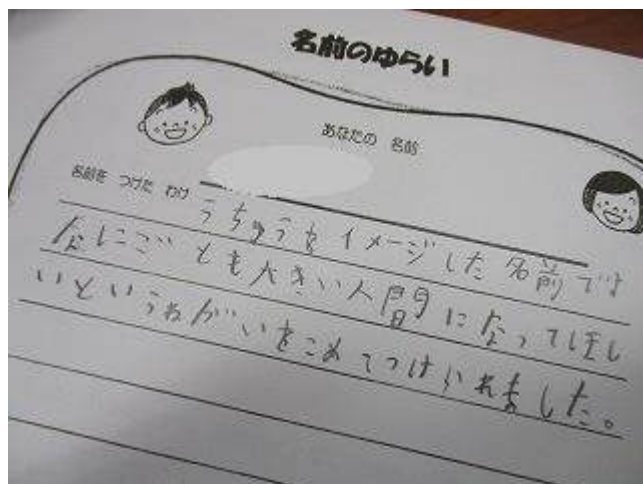 名前のゆらい
あなたの 名前
名前を つけた わけ
うちゅうをイメージした名前です
なにごとも大きい人間になってほし
いというねがいをこめてつけられました。